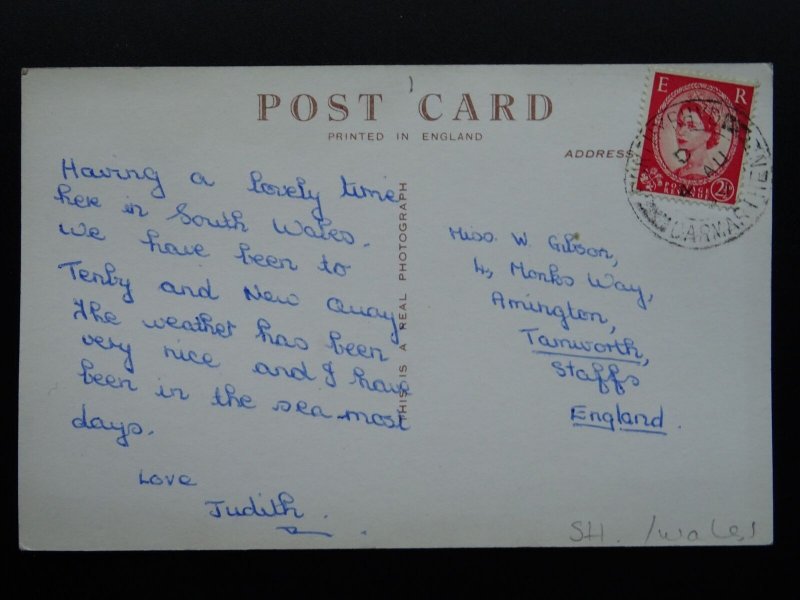 POST CARD
PRINTED IN ENGLAND
ADDRESS
THIS IS A REAL PHOTOGRAPH
E R
2½D
CARMARTHEN
AU
Having a lovely time
here in South Wales.
We have been to
Tenby and New Quay
The weather has been
very nice and I have
been in the sea most
days.
Love
Judith.
Miss. W. Gibson,
4, Monks Way,
Amington,
Tamworth,
Staffs
England.
SH. /Wales